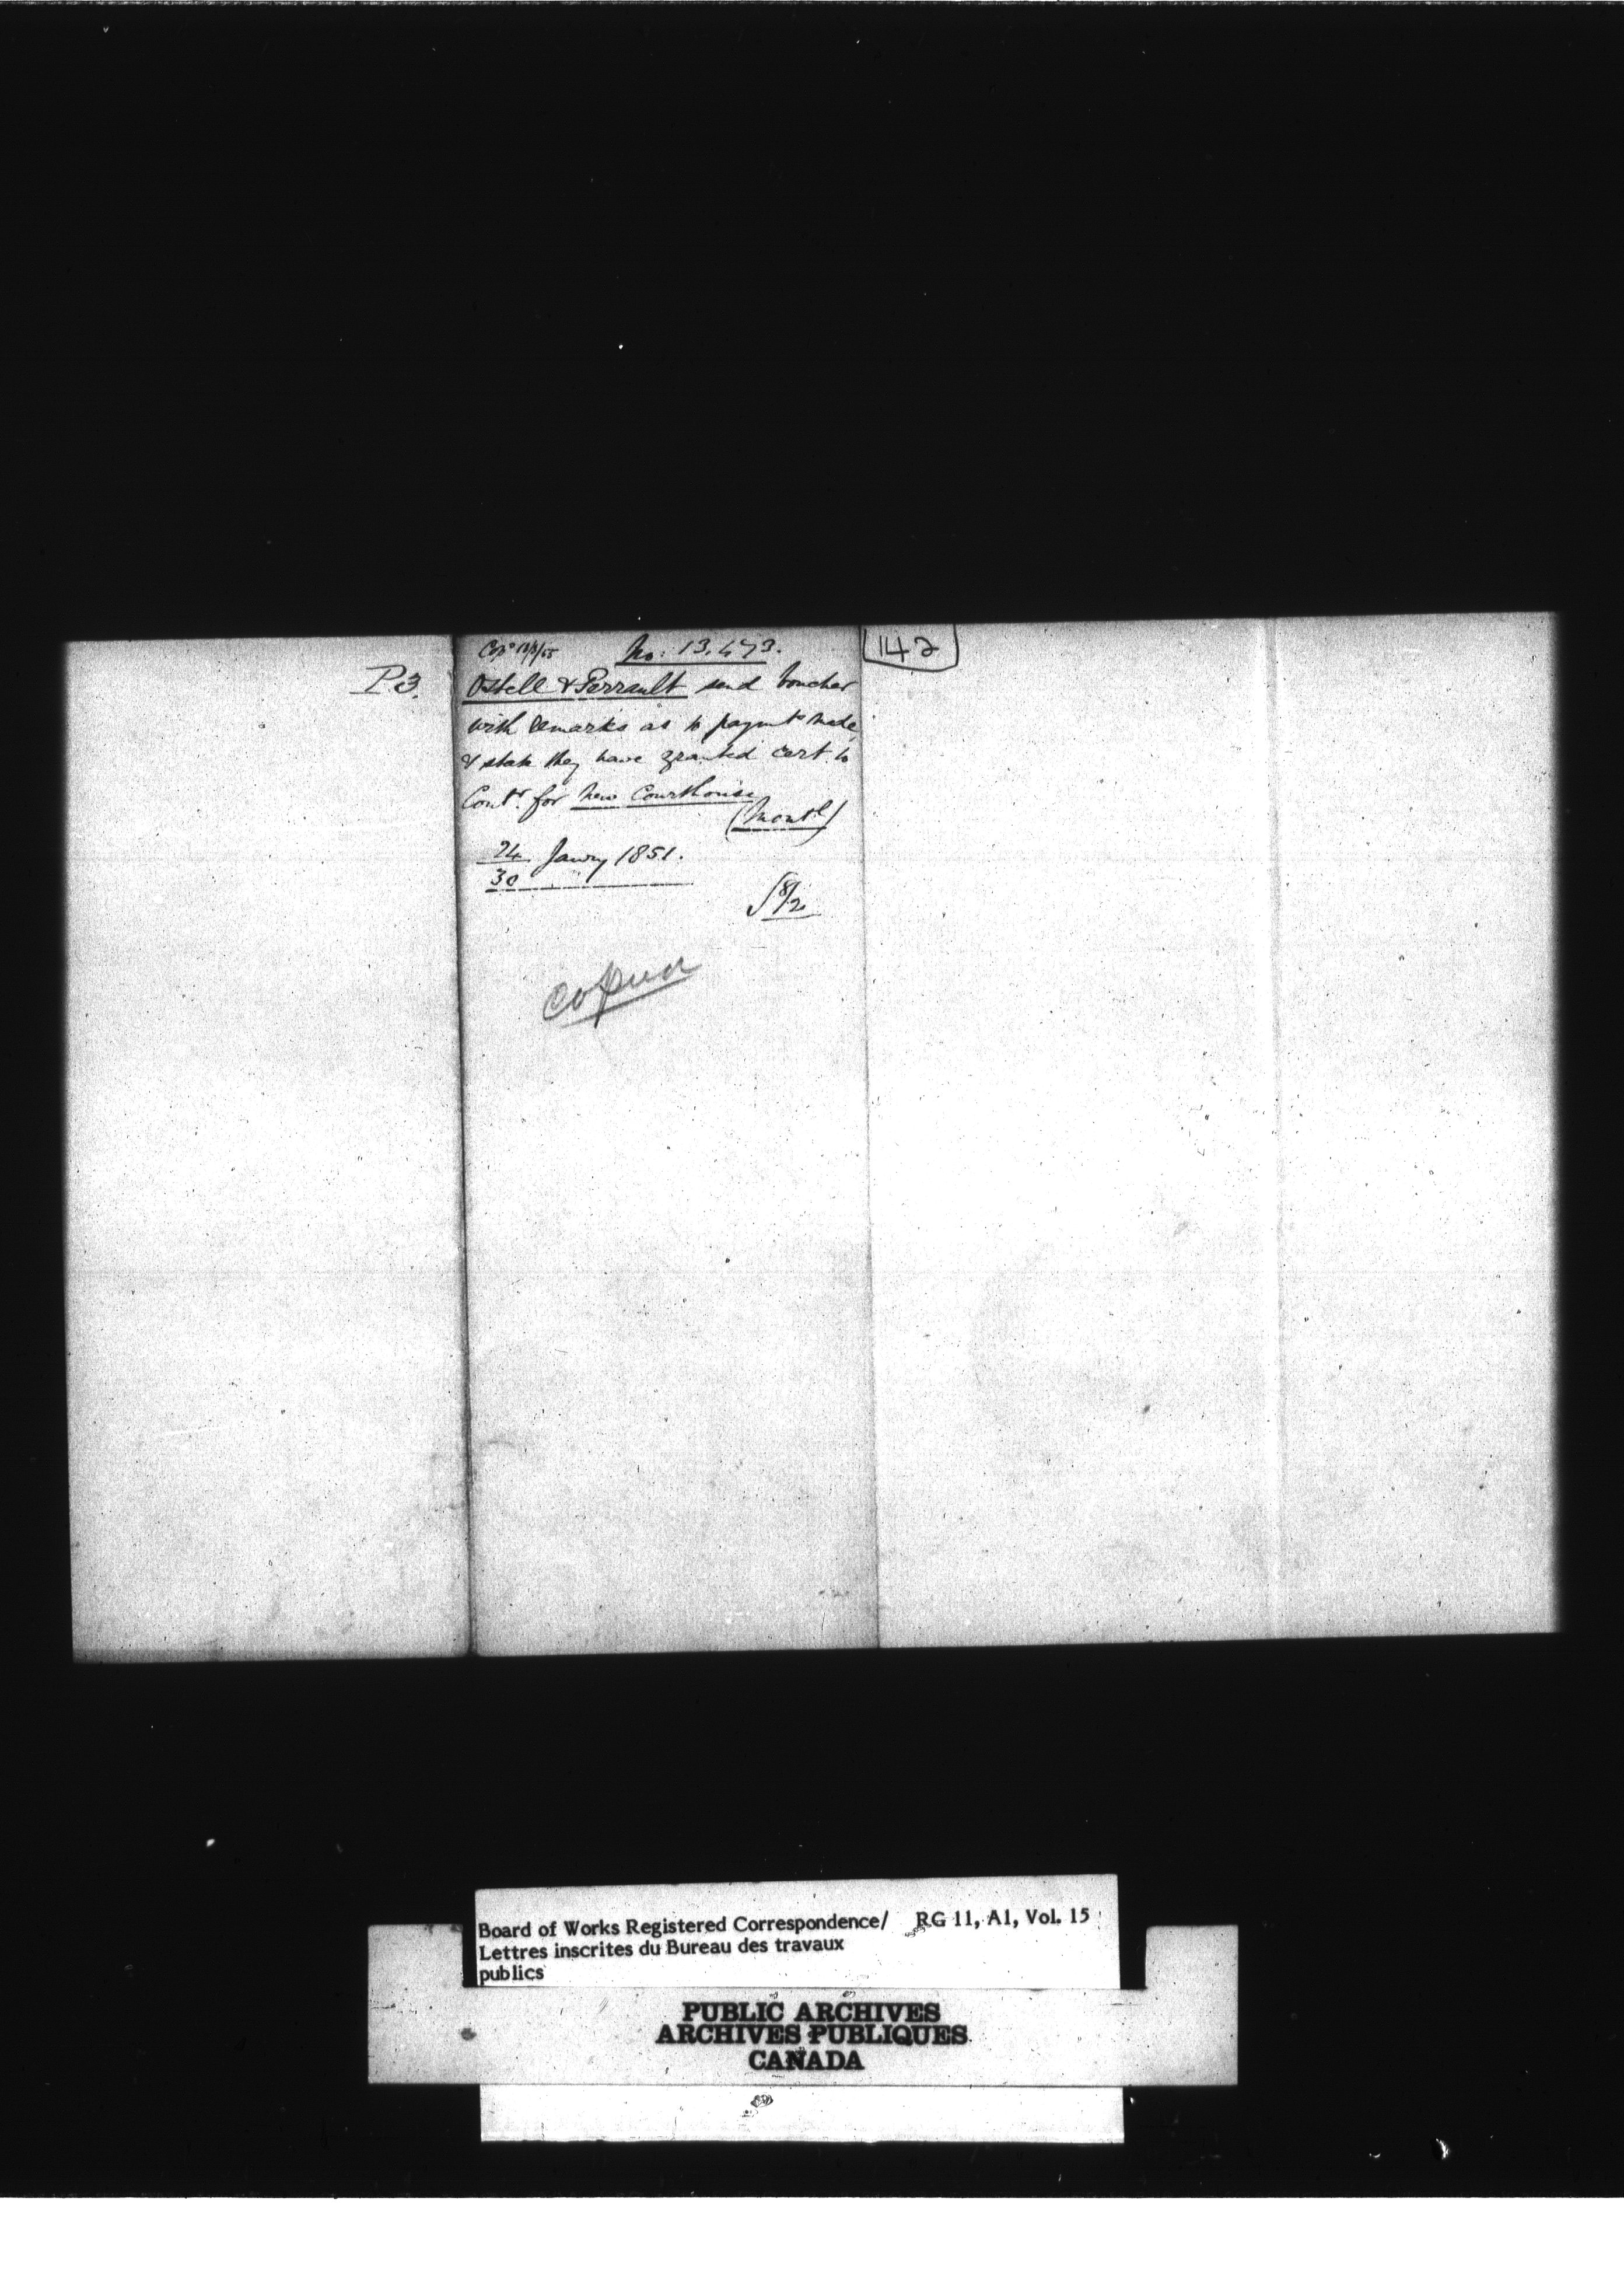 P3.
No: 13,473.
142
Ostell & Perrault send voucher
with remarks as to paymts made,
& state they have granted cert. to
Contr. for New Courthouse
(Montl)
24 Janry 1851.
30
8/2
Board of Works Registered Correspondence/ RG 11, A1, Vol. 15
Lettres inscrites du Bureau des travaux
publics
PUBLIC ARCHIVES
ARCHIVES PUBLIQUES
CANADA